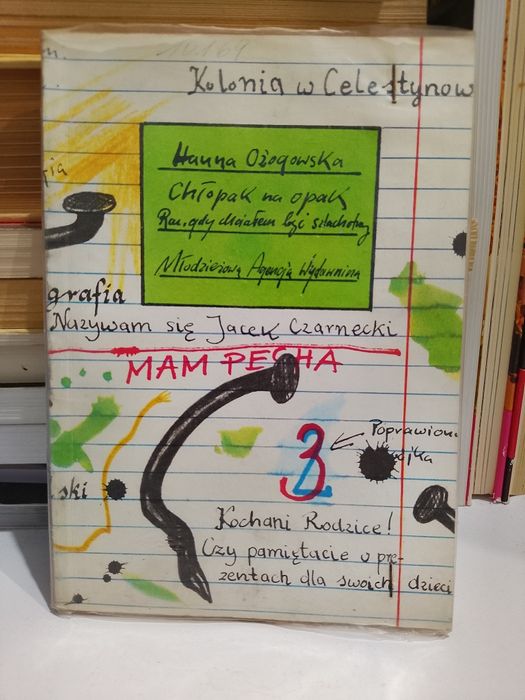 10.169
Kolonia w Celestynow
Hanna Ożogowska
Chłopak na opak
Raz, gdy chciałem być szlachetny
Młodzieżowa Agencja Wydawnicza
grafia
Nazywam się Jacek Czarnecki
MAM PECHA
3
Poprawiona
ójka
ski
Kochani Rodzice!
Czy pamiętacie o pre-
zentach dla swoich dzieci